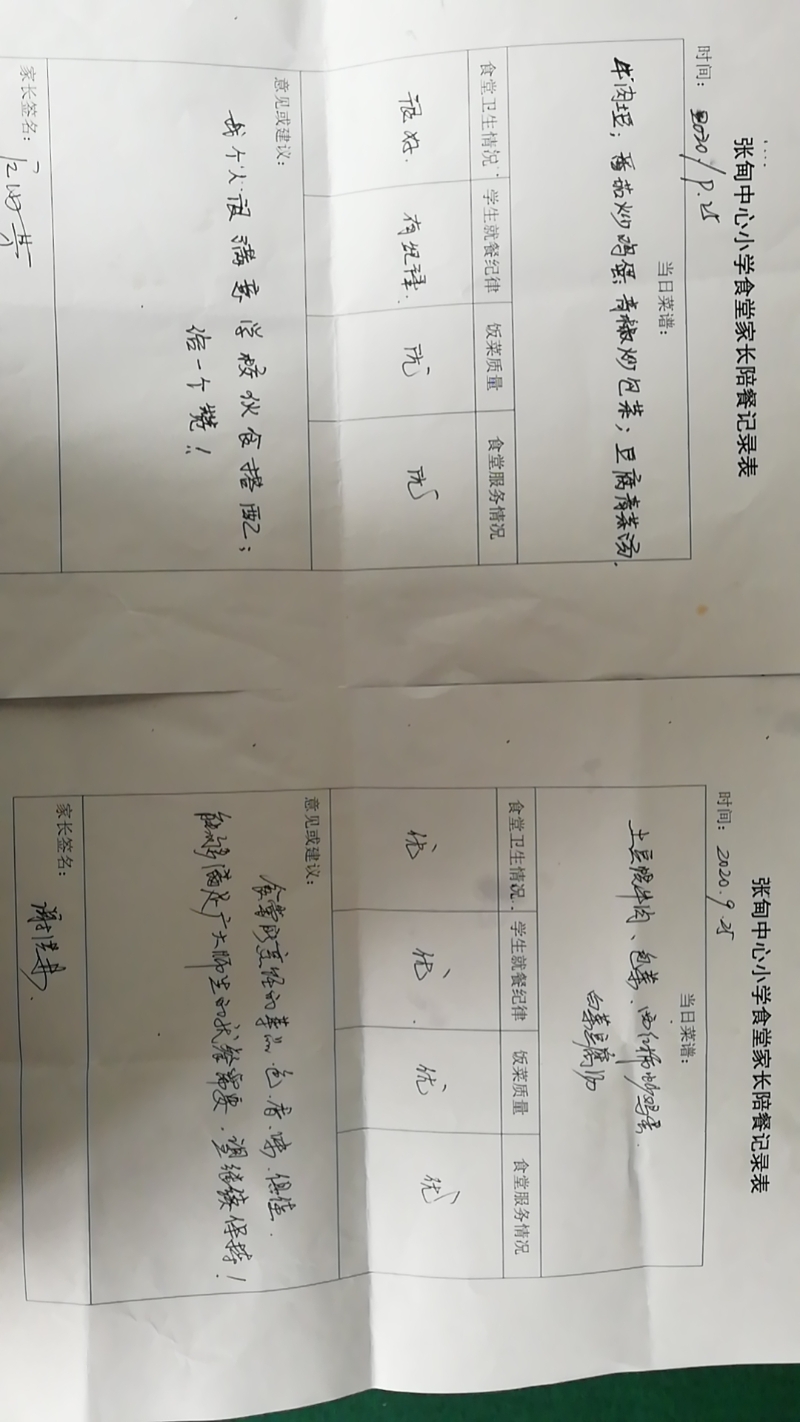 张甸中心小学食堂家长陪餐记录表
时间：2020/9.25
当日菜谱：
牛肉土豆；番茄炒鸡蛋；青椒炒包菜；豆腐青菜汤.
食堂卫生情况 学生就餐纪律 饭菜质量 食堂服务情况
很好. 有纪律. 优 优
意见或建议：
我个人很满意学校伙食搭配；
给一个赞！
家长签名：
张甸中心小学食堂家长陪餐记录表
时间：2020.9.25
当日菜谱：
土豆烧牛肉、包菜、西红柿炒鸡蛋.
白菜豆腐汤
食堂卫生情况 学生就餐纪律 饭菜质量 食堂服务情况
优 优. 优 优
意见或建议：
食堂所烹饪的菜品色、香、味俱佳.
能够满足广大师生的就餐需要. 望继续保持！
家长签名：谢